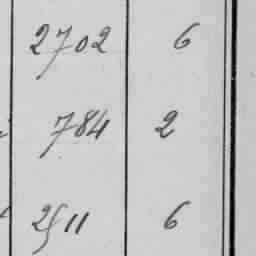 2702 6
784 2
2511 6